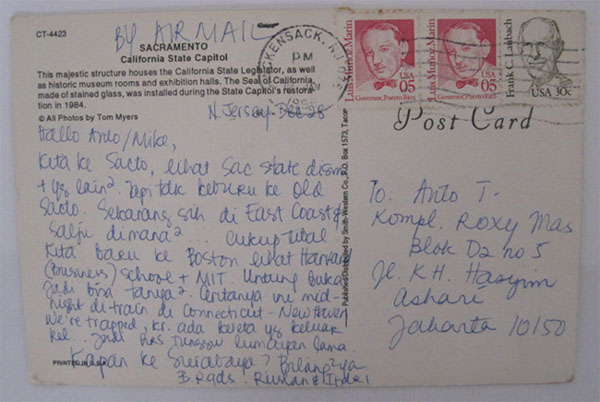 CT-4423
BY AIR MAIL
SACRAMENTO
California State Capitol
This majestic structure houses the California State Legislator, as well
as historic museum rooms and exhibition halls. The Seal of California,
made of stained glass, was installed during the State Capitol's restora-
tion in 1984.
© All Photos by Tom Myers
N. Jersey Dec 28
Hallo Anto/Mike,
Kita ke Sacto, lihat Sac State dism
+ yg lain². Tapi tdk keburu ke Old
Sacto. Sekarang sih di East Coast
Salju dimana² ... cukup tebal
Kita baru ke Boston lihat Harvard
(Business) School + MIT. Untung buka
jadi bisa tanya². Ceritanya ini mid-
night di train di Connecticut - New Haven
We're trapped, kr. ada kereta yg keluar
rel... jadi hrs tunggu lumayan lama.
Kapan ke Surabaya? Bilang² ya
B. rgds.
PRINTED IN U.S.A.
Published & Distributed by Smith-Western Co., P.O. Box 1573,
HACKENSACK, N.J.
PM
Luis Muñoz Marin
USA
05
Governor, Puerto Rico
Luis Muñoz Marin
USA
05
Governor, Puerto Rico
Frank C. Laubach
USA 30c
Post Card
To. Anto T.
Kompl. Roxy Mas
Blok D2 no 5
Jl. KH. Hasyim
Ashari
Jakarta 10150